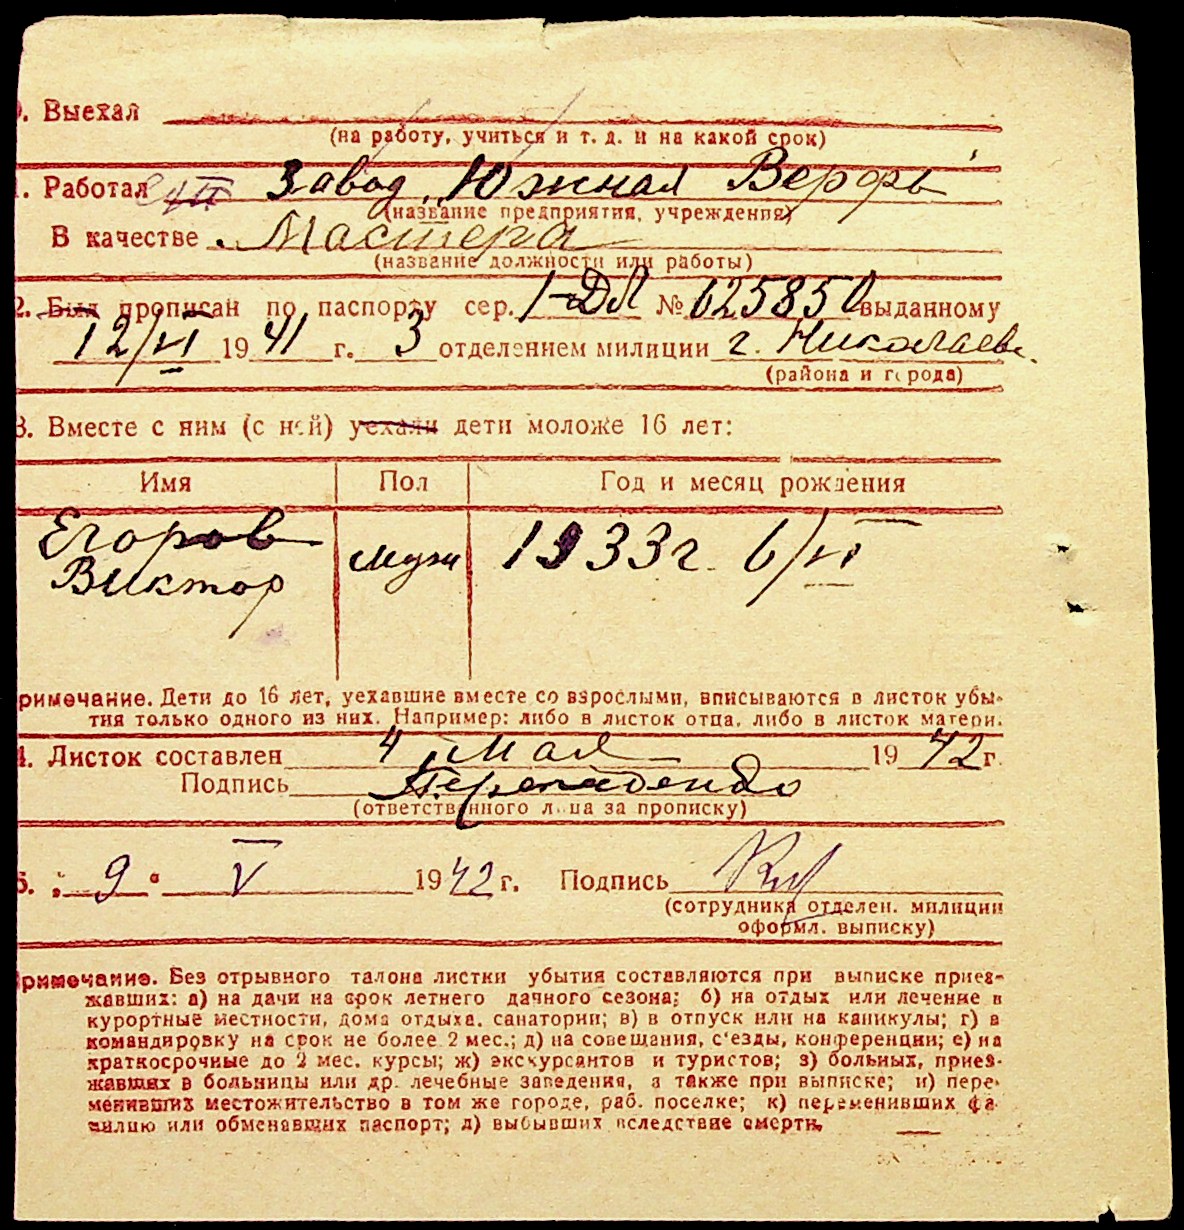 . Выехал
(на работу, учиться и т. д. и на какой срок)
. Работал Завод „Южная Верфь
(название предприятия, учреждения)
В качестве Мастера
(название должности или работы)
2. Был прописан по паспорту сер. I-ДЛ № 625850 выданному
12/VI 1941 г. 3 отделением милиции г. Николаев
(района и города)
3. Вместе с ним (с ней) уехали дети моложе 16 лет:
Имя Пол Год и месяц рождения
Егоров Виктор муж 1933 г. 6/VI
римечание. Дети до 16 лет, уехавшие вместе со взрослыми, вписываются в листок убы-
тия только одного из них. Например: либо в листок отца, либо в листок матери.
4. Листок составлен 4 мая 1942 г.
Подпись
(ответственного лица за прописку)
5. „ 9 “ V 1942 г. Подпись
(сотрудника отделен. милиции
оформл. выписку)
римечание. Без отрывного талона листки убытия составляются при выписке приез-
жавших: а) на дачи на срок летнего дачного сезона; б) на отдых или лечение в
курортные местности, дома отдыха, санатории; в) в отпуск или на каникулы; г) в
командировку на срок не более 2 мес.; д) на совещания, с'езды, конференции; е) на
краткосрочные до 2 мес. курсы; ж) экскурсантов и туристов; з) больных, приез-
жавших в больницы или др. лечебные заведения, а также при выписке; и) пере-
менивших местожительство в том же городе, раб. поселке; к) переменивших фа-
милию или обменявших паспорт; л) выбывших вследствие смерти.